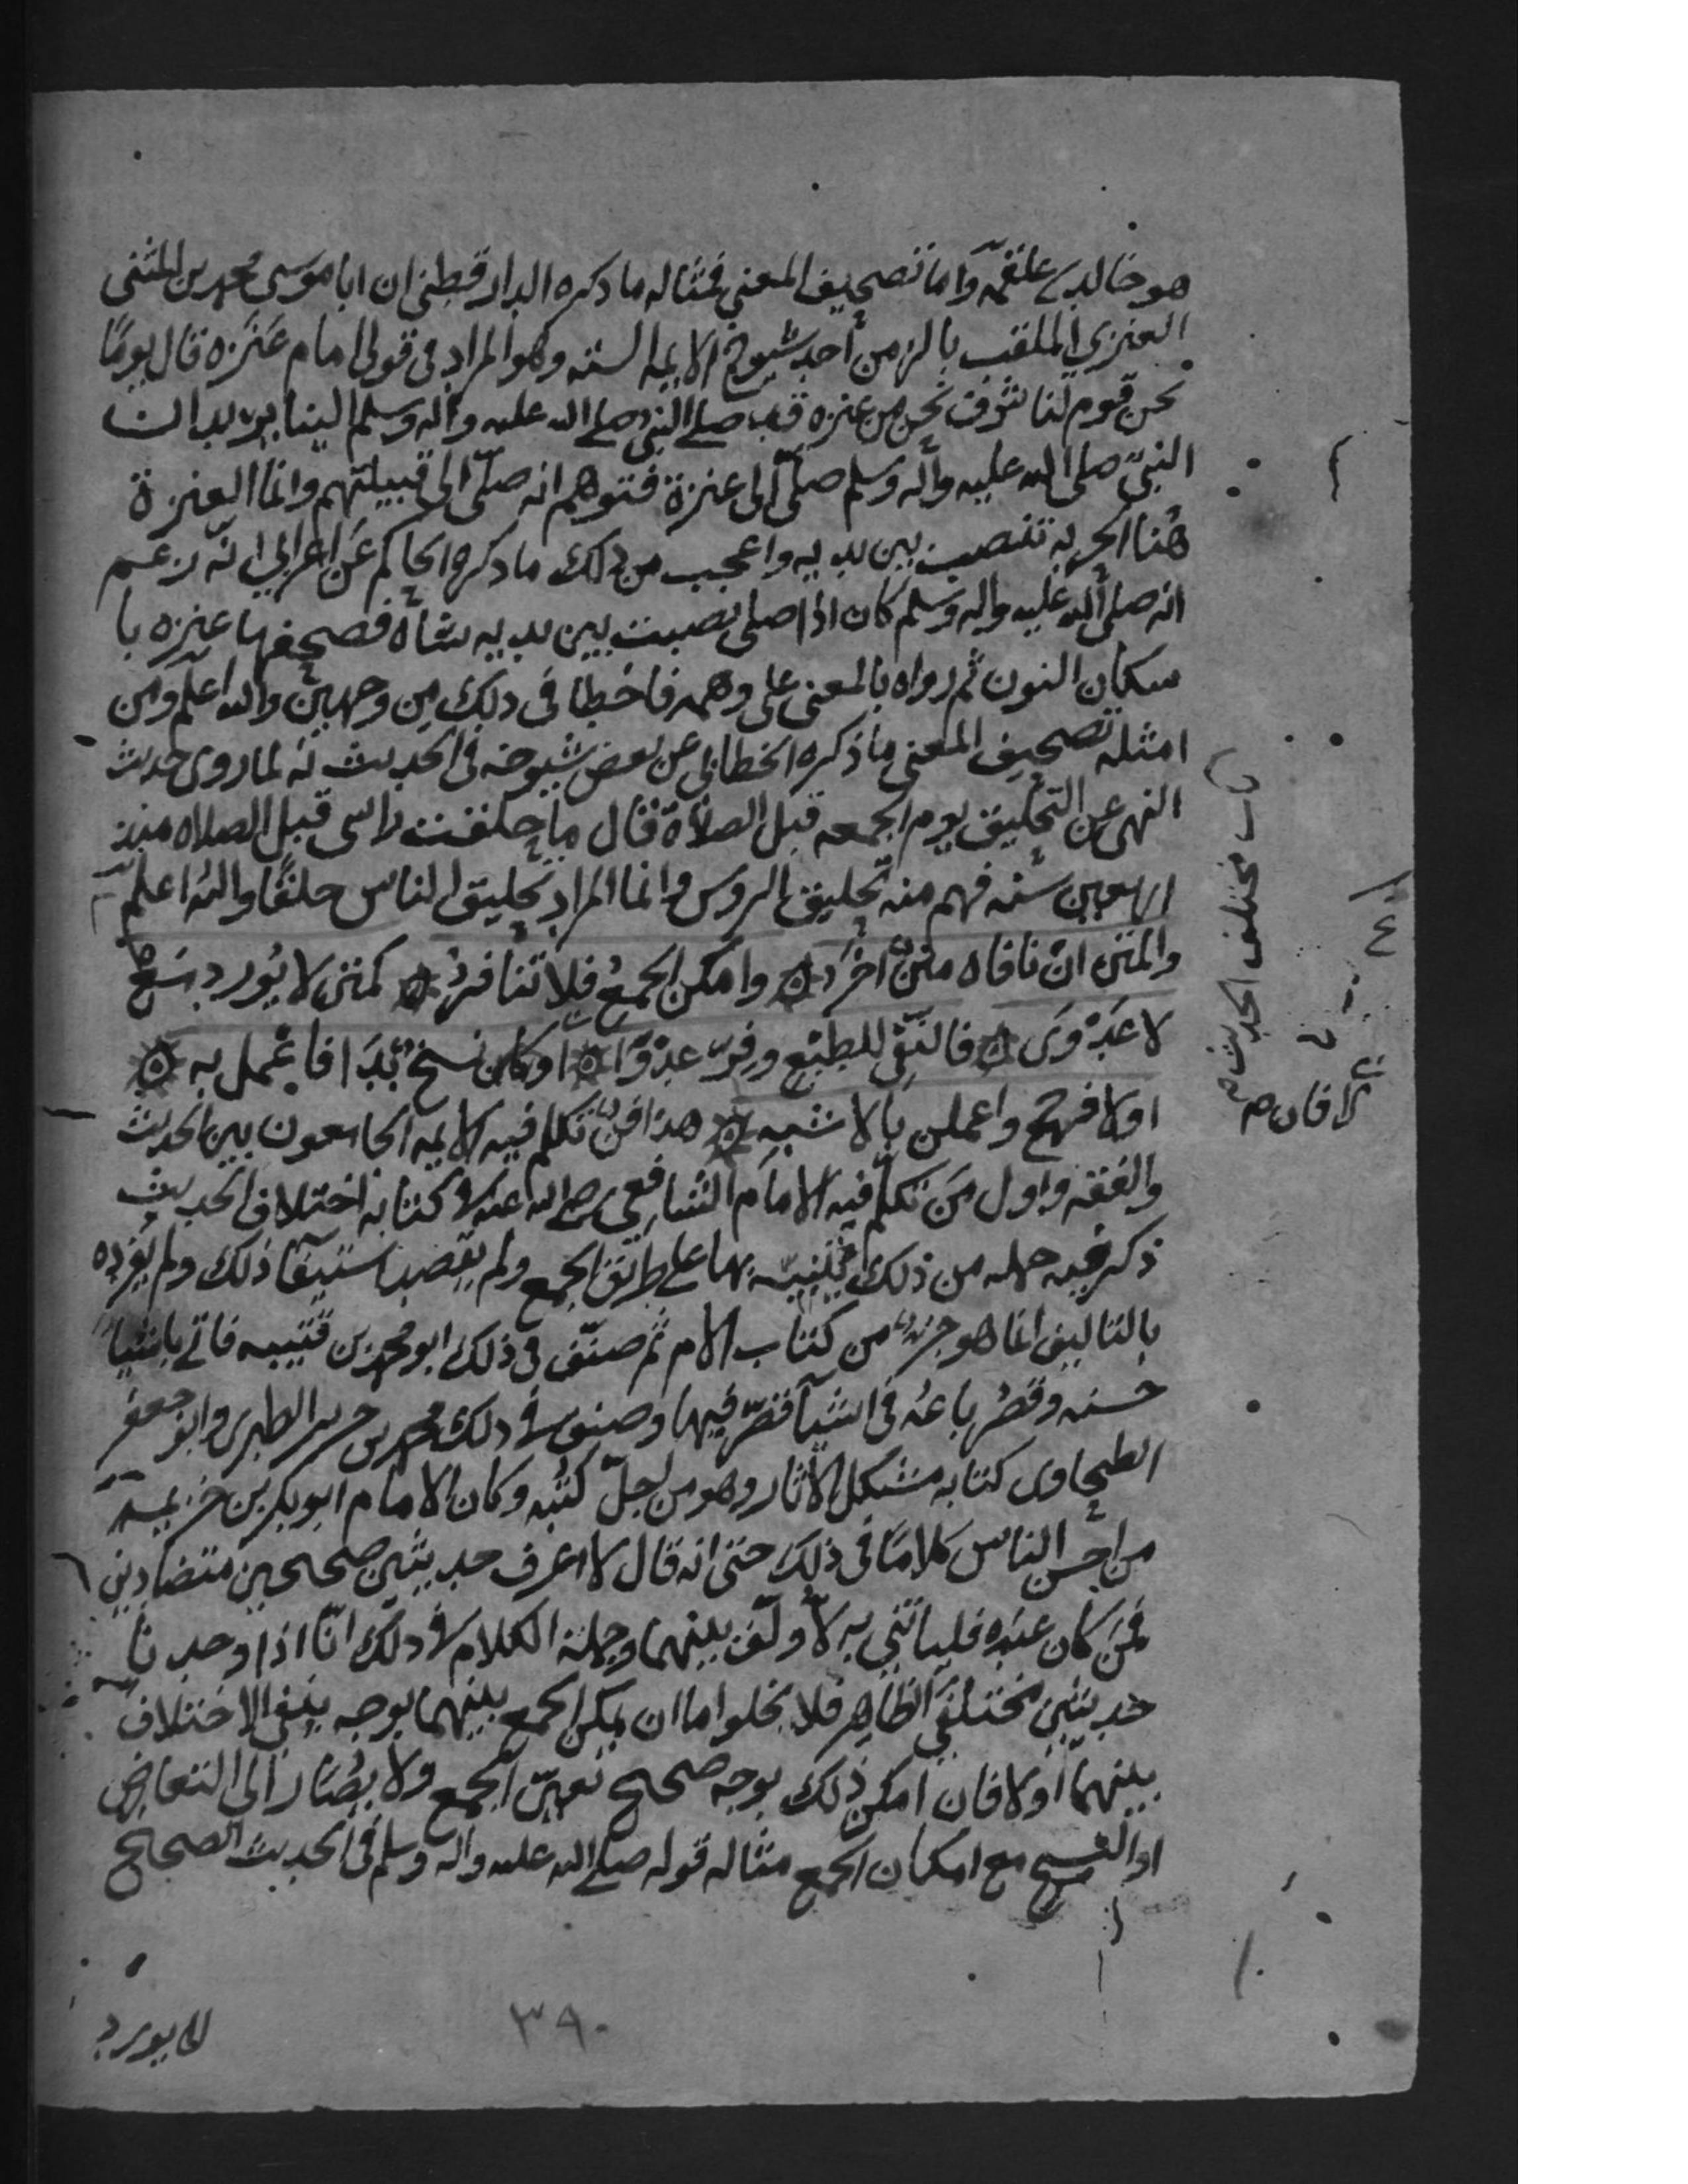 هو خالد بن علقمة وأما تصحيف المعنى فمثاله ما ذكره الدارقطني ان ابا موسى محمد بن المثنى
العنزي الملقب بالزمن أحد شيوخ الايمه السته وهو المراد في قولى امام عَنَزه قال يومًا
نحن قوم لنا شرف نحن من عنزه قد صلى النبي صلى الله عليه وآله وسلم الينا يريد ان
النبيّ صلى الله عليه وآله وسلم صلّى الى عنزة فتوهم انه صلّى الى قبيلتهم وانما العنزة
هُنا الحربه تنصب بين يديه واعجب من ذلك ما ذكره الحاكم عَن اعرابي انّه زعم
انه صلى الله عليه واله وسلم كان اذا صلى نصبت بين يديه شاة فصحفها عنزه با
سكان النون ثم رواه بالمعنى على وهمه فاخطا في ذلك من وجهين والله اعلم ومن
امثله تصحيف المعنى ما ذكره الخطابي عن بعض شيوخه في الحديث انه لما روى حديث
النهى عن التحليق يوم الجمعه قبل الصلاة فقال ما حلقت راسى قبل الصلاه منذ
اربعين سنه فهم منه تحليق الروس وانما المراد تحليق الناس حلقًا والله اعلم
والمتن ان نافاه متنٌ اخَرُ ۞ وامكن الجمعُ فلا تنافرُ ۞ كمتن لا يُورد مع
لا عَدْوَى ۞ فالنفي للطبع وفِرّ عدْوًا ۞ او كان نسخ بَدَا فاعمل به ۞
اولا فرجح واعملن بالاشبه ۞ هذا فنٌ تكلم فيه الايمه الجامعون بين الحديث
والفقه واول مَن تكلّم فيه الامام الشافعى رضي الله عنه في كتابه اختلاف الحديث
ذكر فيه جمله من ذلك يُنَبِّه بها على طرائق الجمع ولم يقصد استيفآ ذلك ولم يُفرده
بالتاليف انما هو جزءٌ من كتاب الام ثم صنّف في ذلك ابو محمد بن قتيبه فاتى باشيا
حسنه وقصُر باعُه في اشيآ قصّر فيها وصنف في ذلك محمد بن جرير الطبرى وابو جعفر
الطحاوى كتابه مشكل الآثار وهو من اجلّ كُتُبه وكان الامام ابو بكر بن خزيمه
من احسن الناس كلامًا في ذلك حتى انه قال لا اعرف حديثين صحيحين متضادين
فمَن كان عنده فلياتني به لاُولّف بينهما وجملة الكلام في ذلك انّا اذا وجدنا
حديثين مختلفَي الظاهر فلا يخلوا اما ان يمكن الجمع بينهما بوجه ينفى الاختلاف
بينهما اولا فان امكن ذلك بوجه صحيح تعيّن الجمع ولا يُصَار الى التعارض
او النسخ مع امكان الجمع مثاله قوله صلى الله عليه واله وسلم في الحديث الصحيح
لا يورد
٣٩٠
مختلف الحديث